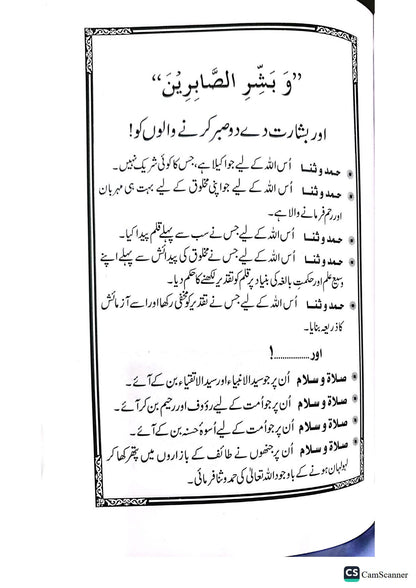 ”وَ بَشِّرِ الصَّابِرِیْنَ“
اور بشارت دے دو صبر کرنے والوں کو!
حمد و ثنا اُس اللہ کے لیے جو اکیلا ہے، جس کا کوئی شریک نہیں۔
حمد و ثنا اُس اللہ کے لیے جو اپنی مخلوق کے لیے بہت ہی مہربان
اور رحم فرمانے والا ہے۔
حمد و ثنا اُس اللہ کے لیے جس نے سب سے پہلے قلم پیدا کیا۔
حمد و ثنا اُس اللہ کے لیے جس نے مخلوق کی پیدائش سے پہلے اپنے
وسیع علم اور حکمتِ بالغہ کی بنیاد پر قلم کو تقدیر لکھنے کا حکم دیا۔
حمد و ثنا اُس اللہ کے لیے جس نے تقدیر کو مخفی رکھا اور اسے آزمائش
کا ذریعہ بنایا۔
اور ...............!
صلاۃ و سلام اُن پر جو سید الانبیاء اور سید الاتقیاء بن کے آئے۔
صلاۃ و سلام اُن پر جو اُمت کے لیے رؤوف اور رحیم بن کر آئے۔
صلاۃ و سلام اُن پر جو اُمت کے لیے اسوۂ حسنہ بن کے آئے۔
صلاۃ و سلام اُن پر جنھوں نے طائف کے بازاروں میں پتھر کھا کر
لہولہان ہونے کے باوجود اللہ تعالیٰ کی حمد و ثنا فرمائی۔
CS CamScanner